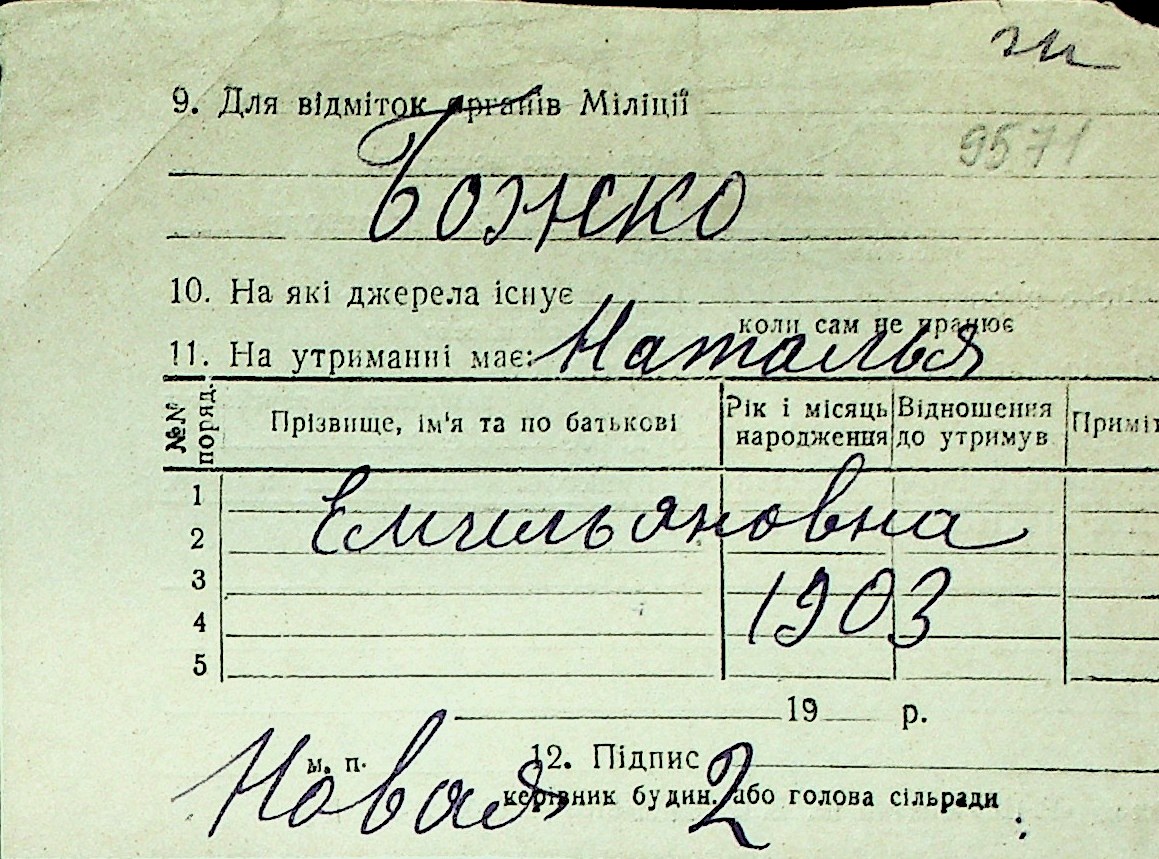 9. Для відміток органів Міліції
9571
Божко
10. На які джерела існує
коли сам не працює
11. На утриманні має:
Наталья
№№ поряд.
Прізвище, ім'я та по батькові
Рік і місяць народження
Відношення до утримув
Приміт
1
2
3
4
5
Емильяновна
1903
19 р.
м. п.
12. Підпис
керівник будин. або голова сільради
Новая 2